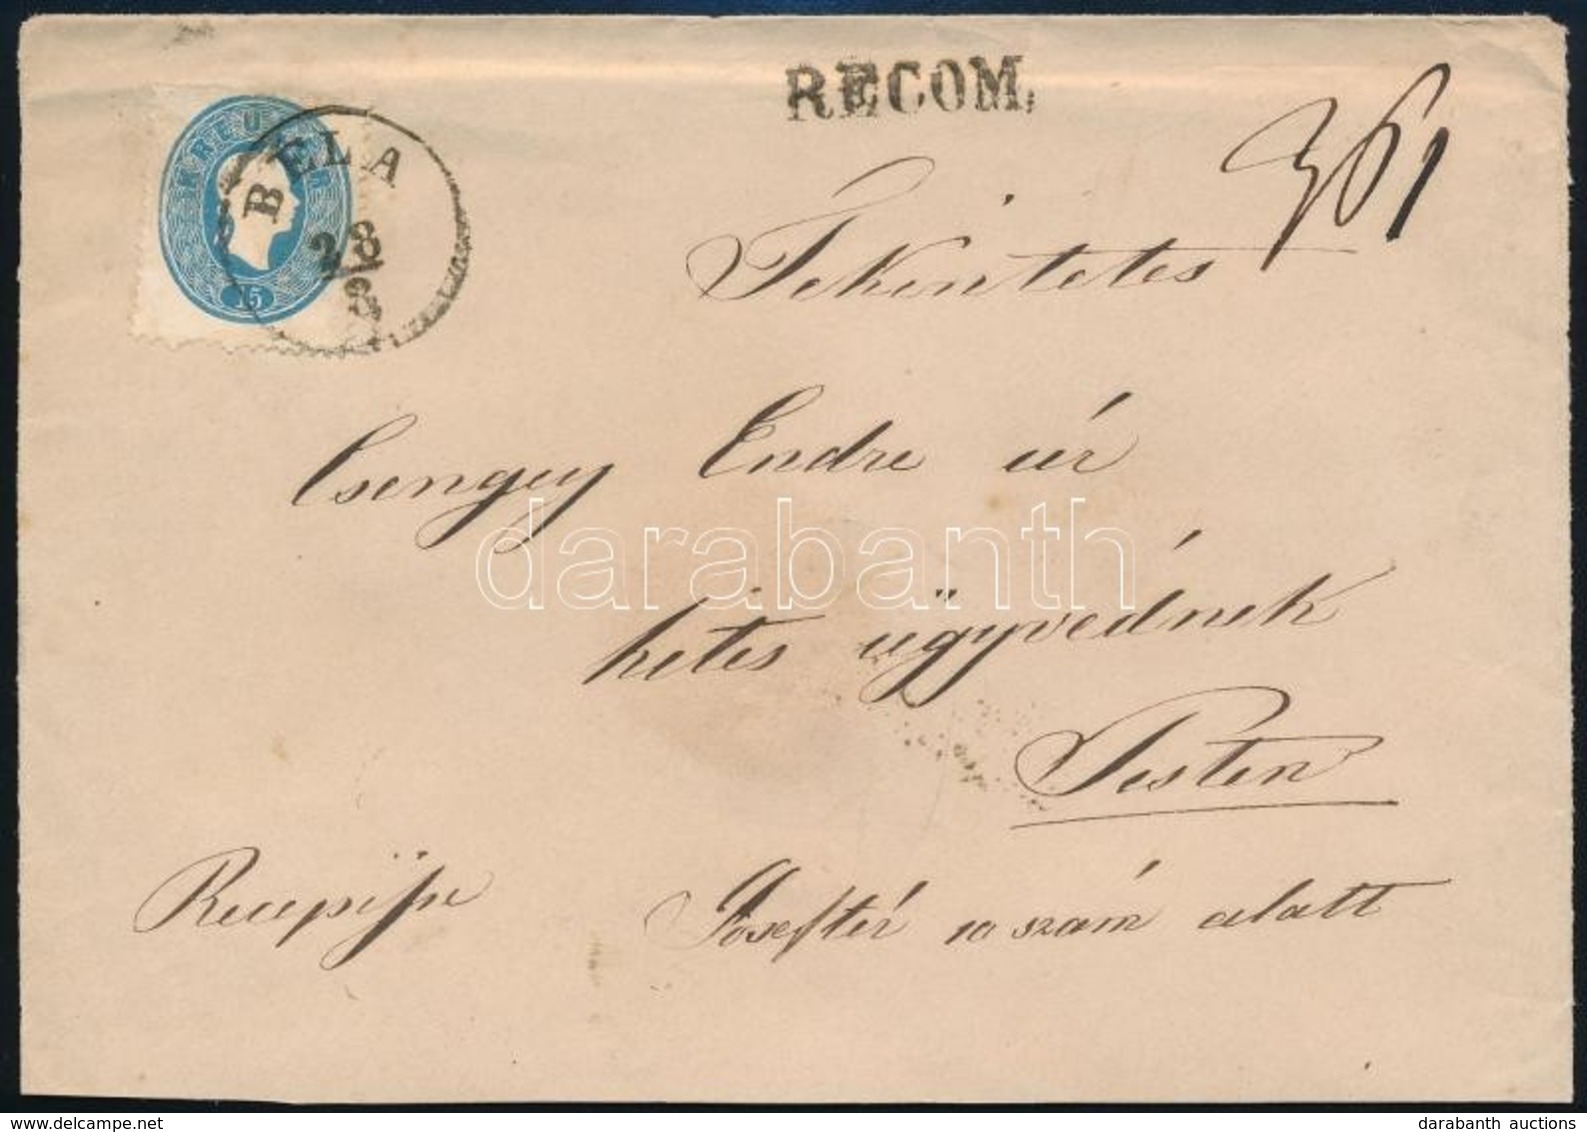 RECOM.
361
KREUZER
15
BELA
28/8
Tekintetes
Csengey Endre úr
hites ügyvédnek
Pesten
Recepisse
Joseftér 10 szám alatt
darabanth
www.delcampe.net
darabanth auctions